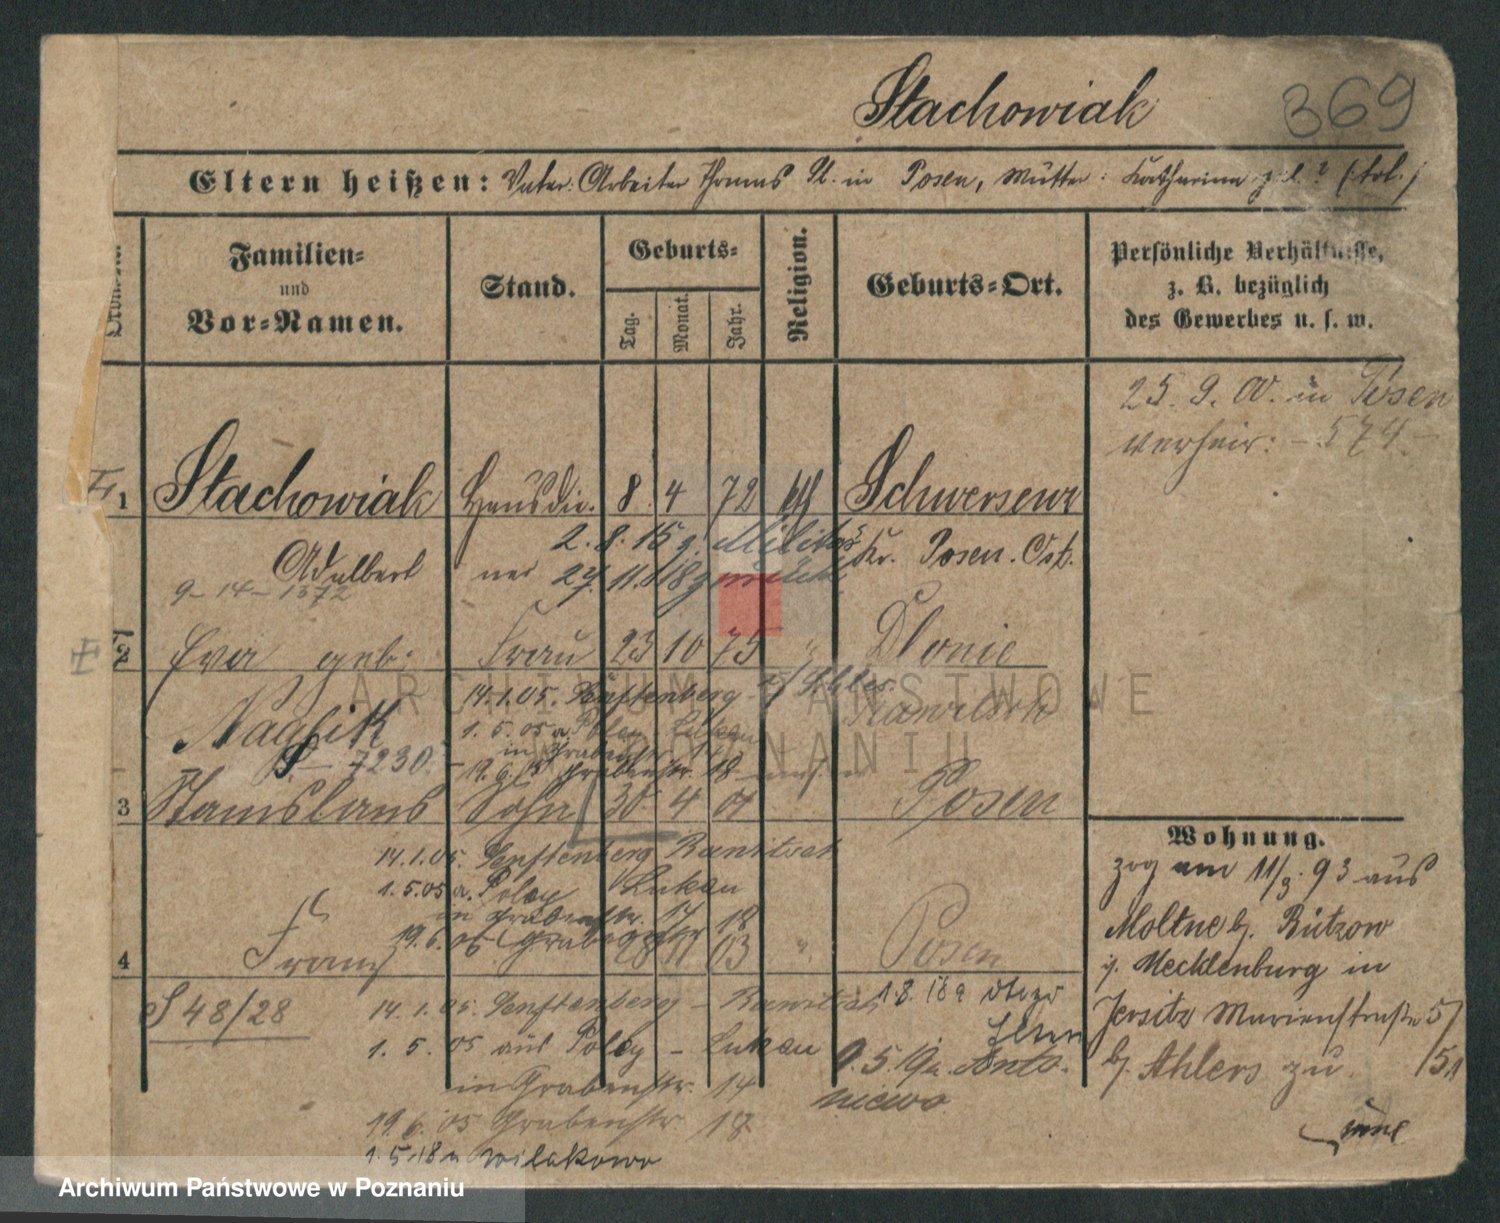 Stachowiak 369
Eltern heißen: Vater: Arbeiter Thomas St. in Posen, Mutter: Katharina
Familien- und Vor-Namen.
Stand.
Geburts-
Tag. Monat. Jahr.
Religion.
Geburts-Ort.
Persönliche Verhältnisse,
z. B. bezüglich
des Gewerbes u. s. w.
25. 9. 00. in Posen
verheir: - 574 -
1 Stachowiak Hausdie- 8 4 72 Schwersenz
2. 8. 15 z. Militär
Adalbert ner 27. 11. 18 Kr. Posen. Ost.
9-14-1372
2 Eva geb: Frau 23 10 75 " Dlonie
14.1.05. Senftenberg
Rawitsch
1. 5. 05 a.
in Grabenstr.
S - 7230.
19. 6. 05 Grabenstr. 18
3 Stanislaus Sohn 30 4 01 Posen
14.1.05. Senftenberg Rawitsch
1. 5. 05 a. Luckau
in Grabenstr. 14
19. 6. 05 Grabenstr 18
4 Franz 28 11 03 " Posen
S 48/28
14. 1. 05. Senftenberg - Rawitsch
1. 5. 05 aus - Luckau
in Grabenstr. 14
19. 6. 05 Grabenstr 18
1. 5. 18 n Wilakowo
Eltern
Anto-
niewo
Wohnung.
zog am 11/9. 93 aus
Moltne b. Bützow
i. Mecklenburg in
Jersitz Marienstraße 51
b. Ahlers zu.
ARCHIWUM PAŃSTWOWE
W POZNANIU
Archiwum Państwowe w Poznaniu